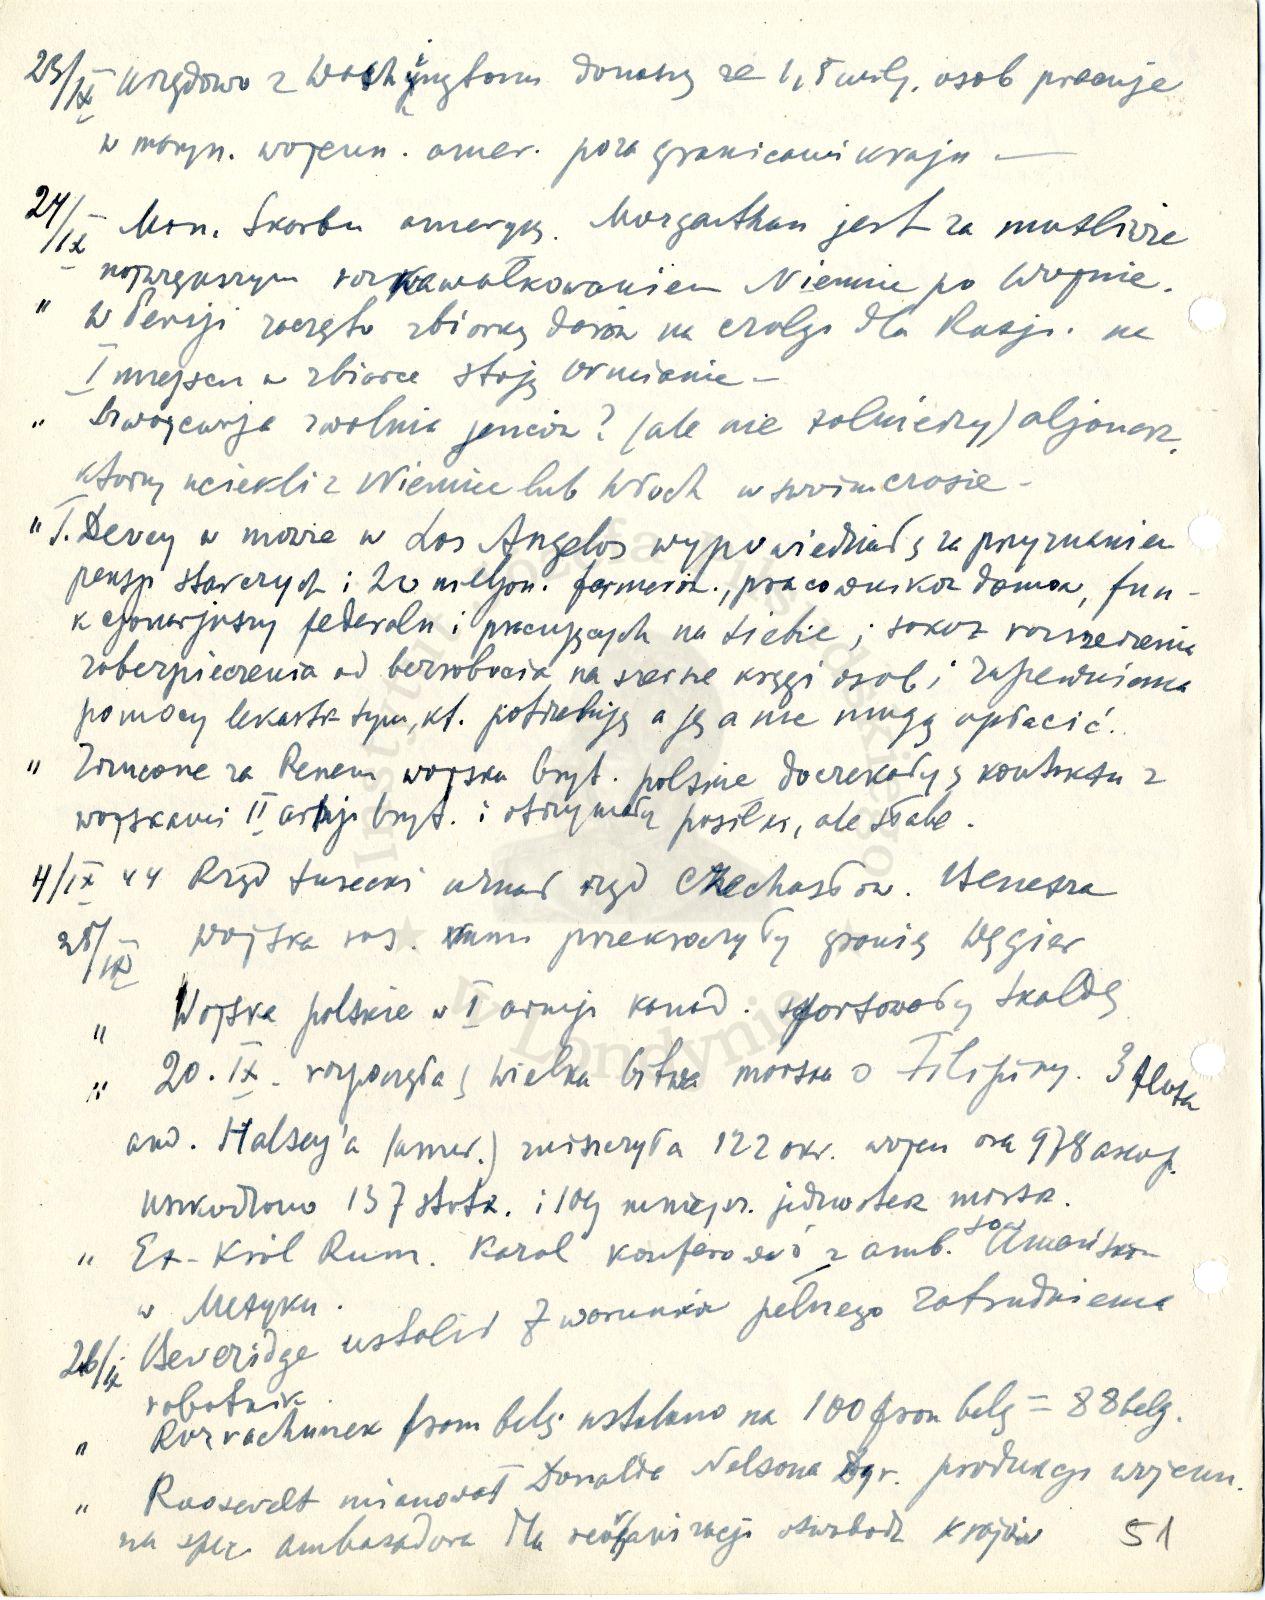 23/IX Urzędowo z Waschyngtonu donoszą ze 1,5 milj. osob pracuje
w maryn. wojenn. amer. poza granicami kraju —
24/IX Min. Skarbu ameryk. Morgenthau jest za możliwie
największym rozkawałkowaniem Niemiec po Wojnie.
" W Persji zaczęto zbiorkę darów na czołgi dla Rosji. na
I miejscu w zbiorce stoją Ormianie —
" Szwajcarja zwolnia jencow? (ale nie zolnierzy) aljanck.
ktorzy uciekli z Niemiec lub Włoch w swoim czasie —
" T. Dewey w mowie w Los Angelos wypowiedział ś za przyznaniem
pensji starczych i 20 miljon. farmerow., pracownikow domow, fun-
kcjonarjuszy federaln i pracujących na siebie; oraz rozszerzenia
zabezpieczenia od bezrobocia na szersze kręgi osob i zapewnienia
pomocy lekarsk tym, kt. potrzebują a ją a nie mogą opłacić.
" Zrzucone za Renem wojska bryt. polskie doczekały ś kontaktu z
wojskami II armji bryt. i otrzymały posiłki, ale słabe.
4/IX 44 Rząd turecki uznał rząd Czechosłow. Benesza
25/IX Wojska ros. rum przekroczyły granię Węgier
" Wojska polskie w I armji kanad. sforsowały Skaldę
" 20. IX. rozpoczęła ś wielka bitwa morska o Filipiny. 3 flota
amd. Halsey'a (amer.) zniszczyła 122 okr. wojen oraz 978 aerop.
uszkodzono 137 statk. i 109 mniejsz. jednostek morsk.
" Ex-Król Rum. Karol konferował z amb. sow Umańskim
w Meksyku.
26/IX Beveridge ustalił 7 warunków pełnego zatrudnienia
robotnik
" Rozrachunek fran belg. ustalono na 100 fran belg = 88 belg.
" Roosevelt mianował Donalda Nelsona Dyr. produkcji wojenn.
na spec. ambasadora dla reorganizacji oswobodz krajów 51
Instytut Józefa Piłsudskiego
w Londynie